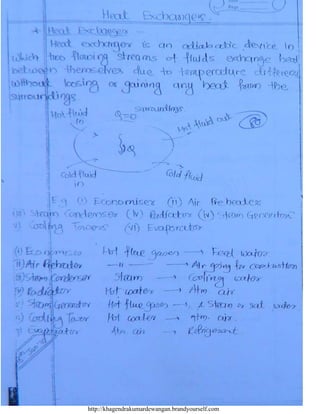 Heat Exchangers.
* Heat Exchanger -
Heat exchanger is an adiabatic device in
which two flowing streams of fluids exchange heat
between themselves due to temperature difference
without loosing or gaining any heat from the
surroundings.
Hot fluid in
surroundings
Q=0
Hot fluid out
Q
Cold fluid in
Cold fluid
E.g (i) Economiser (ii) Air Preheater
(iii) Steam Condenser (iv) Radiator (iv) Steam Generator
v) Cooling Towers (vi) Evaporator
(i) Economiser Hot flue gases → Feed water
(ii) Air Preheater —"— → Air going for combustion
(iii) Steam Condenser Steam → Cooling water
(iv) Radiator Hot water → Atm. air
v) Steam Generator Hot flue gases → Steam or sat. water
Cooling Tower Hot water → Atm. air.
Evaporator Atm. air → Refrigerant.
http://khagendrakumardewangan.brandyourself.com